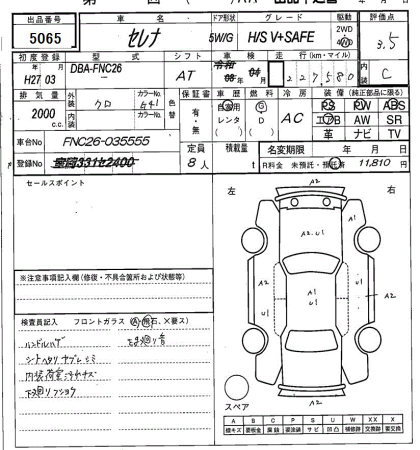 出品番号 車名 ドア形状 グレード 駆動 評価点
5065 セレナ 5W/G H/S V+SAFE 2WD 4WD 3.5
初度登録 型式 シフト 車検 走行(km・マイル) 内装
H27年 03月 DBA-FNC26 AT 227,580 C
排気量 外装 カラーNo. 色替 保証書 車歴 燃料 冷房 装備(純正部品に限る)
2000 c.c. クロ G41 有・無 自家用 レンタ G D AC PS PW ABS
内装 カラーNo. エアB AW SR
革 ナビ TV
車台No FNC26-035555 定員 積載量 名変期限 年 月 日
登録No 8人 t R料金 未預託・預託済 11,810円
セールスポイント
左 右
A2
A2.U1
A1
A2 A1 A2
U1 U1 U1
A2
※注意事項記入欄(修復・不具合箇所および状態等)
検査員記入 フロントガラス(A、飛石、X要ス)
ハンドルハゲ
シートヘタリ ヤブレ シミ
内装荷室汚レキズ
下廻りフショウ
スペア
A B C P S U W XX X
線キズ 要板金 腐蝕 要塗装 サビ 凹凸 補修跡 交換済 要交換